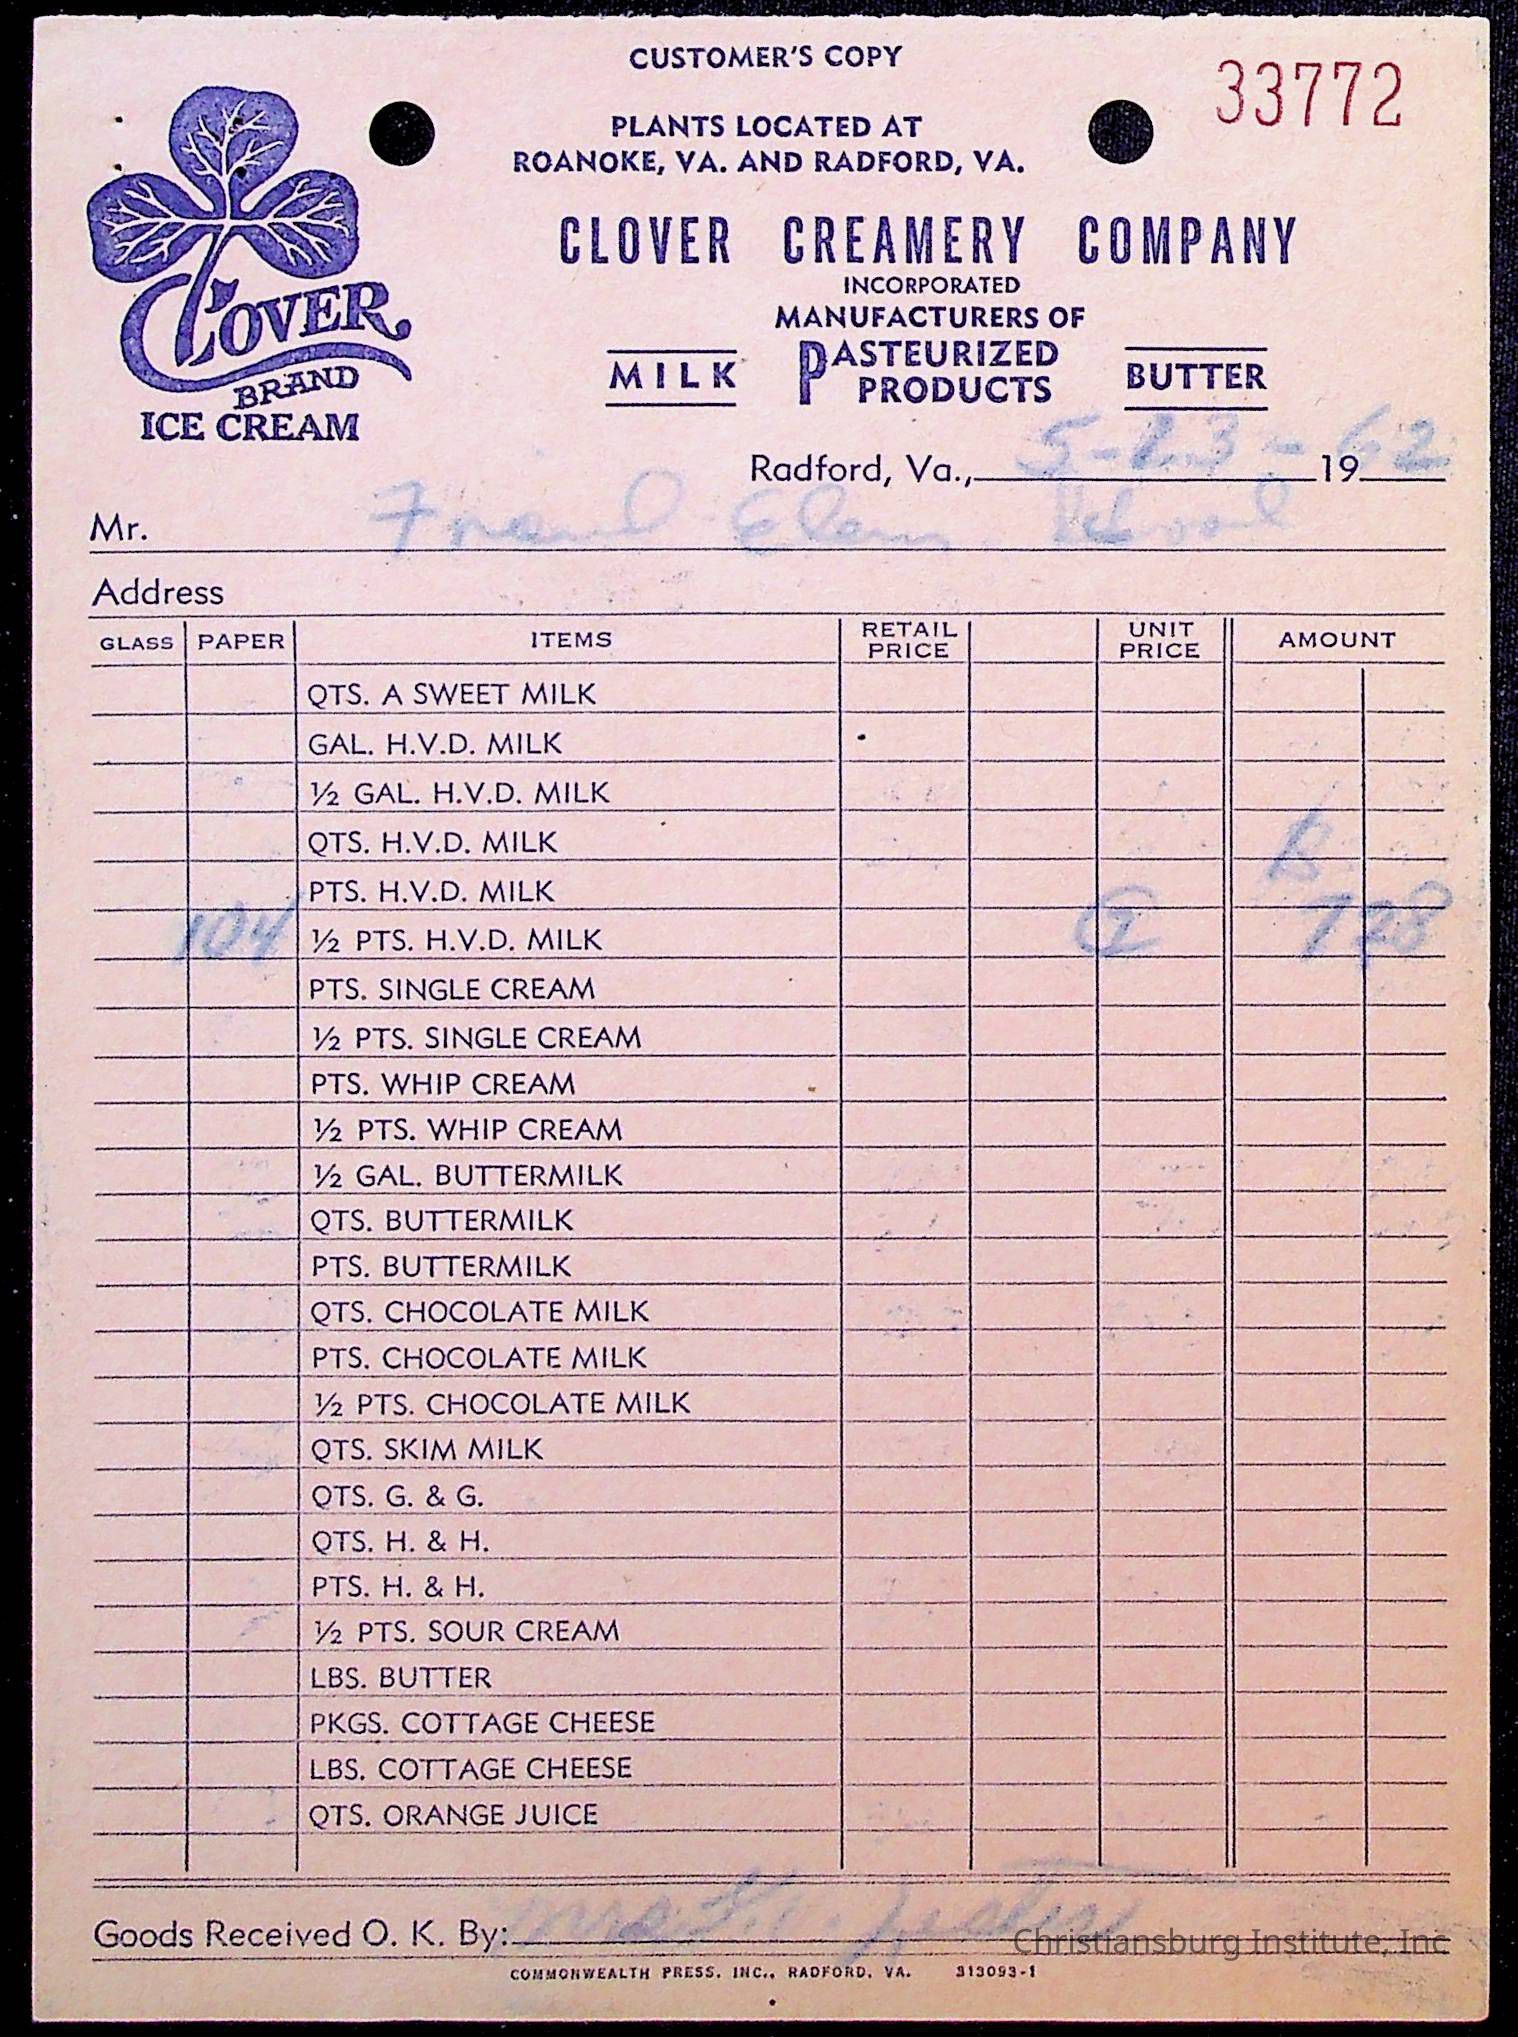 CUSTOMER'S COPY
33772
PLANTS LOCATED AT
ROANOKE, VA. AND RADFORD, VA.
CLOVER CREAMERY COMPANY
INCORPORATED
MANUFACTURERS OF
MILK PASTEURIZED PRODUCTS BUTTER
CLOVER
BRAND
ICE CREAM
Radford, Va., 5-23-1962
Mr. Friend Elem. School
Address
GLASS PAPER ITEMS RETAIL PRICE UNIT PRICE AMOUNT
QTS. A SWEET MILK
GAL. H.V.D. MILK
½ GAL. H.V.D. MILK
QTS. H.V.D. MILK
PTS. H.V.D. MILK
104 ½ PTS. H.V.D. MILK 7 28
PTS. SINGLE CREAM
½ PTS. SINGLE CREAM
PTS. WHIP CREAM
½ PTS. WHIP CREAM
½ GAL. BUTTERMILK
QTS. BUTTERMILK
PTS. BUTTERMILK
QTS. CHOCOLATE MILK
PTS. CHOCOLATE MILK
½ PTS. CHOCOLATE MILK
QTS. SKIM MILK
QTS. G. & G.
QTS. H. & H.
PTS. H. & H.
½ PTS. SOUR CREAM
LBS. BUTTER
PKGS. COTTAGE CHEESE
LBS. COTTAGE CHEESE
QTS. ORANGE JUICE
Goods Received O. K. By: Mrs
Christiansburg Institute, Inc
COMMONWEALTH PRESS, INC., RADFORD, VA. 313093-1